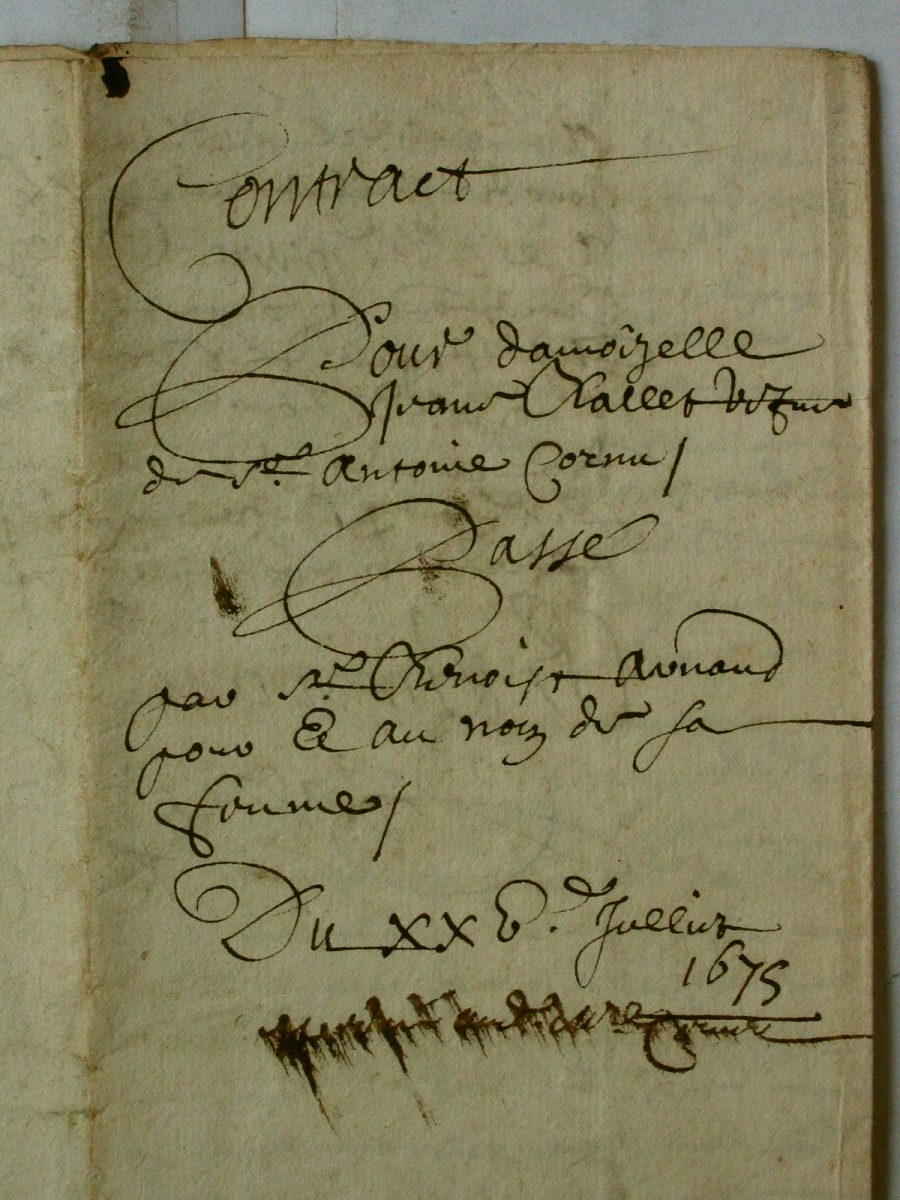 Contract
Pour damoizelle
Jeanne Challet vefve
de Sr. Antoine Cornu /
Passe
par Sr. Benoist Arnaud
pour & au nom de sa
femme /
Du XXVe. Juliet
1675
Cornu